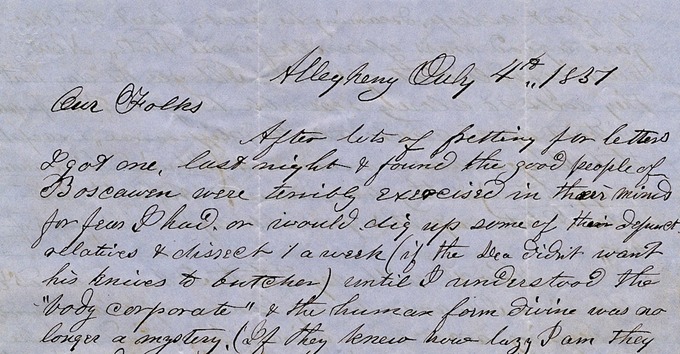 Allegheny July 4th, 1857
Our Folks
After lots of fretting for letters
I got one, last night & found the good people of
Boscawen were terribly exercised in their mind
for fear I had. or would dig up some of their defunct
relatives & dissect 1 a week (if the Dea didn't want
his knives to butcher) until I understood the
"body corporate" & the human form divine was no
longer a mystery. (If they knew how lazy I am they